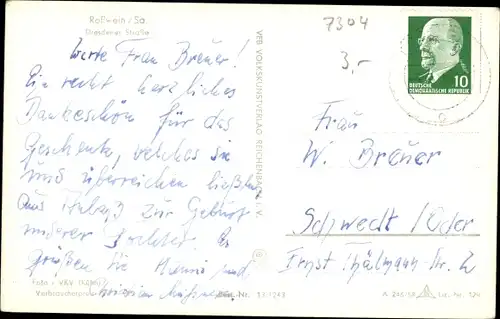 Roßwein/Sa.
Dresdener Straße
7304
3,-
Werte Frau Breuer!
Ein recht herzliches
Dankeschön für das
Geschenk, welches sie
uns überreichen ließen
aus Anlaß zur Geburt
unserer Tochter. Es
grüßen Sie Hanni und
Foto: VKV
Verbraucherpreis
Best.-Nr.
VEB VOLKSKUNSTVERLAG REICHENBACH I. V.
10
DEUTSCHE
DEMOKRATISCHE REPUBLIK
Frau
W. Breuer
Schwedt/Oder
Ernst Thälmann-Str. 2